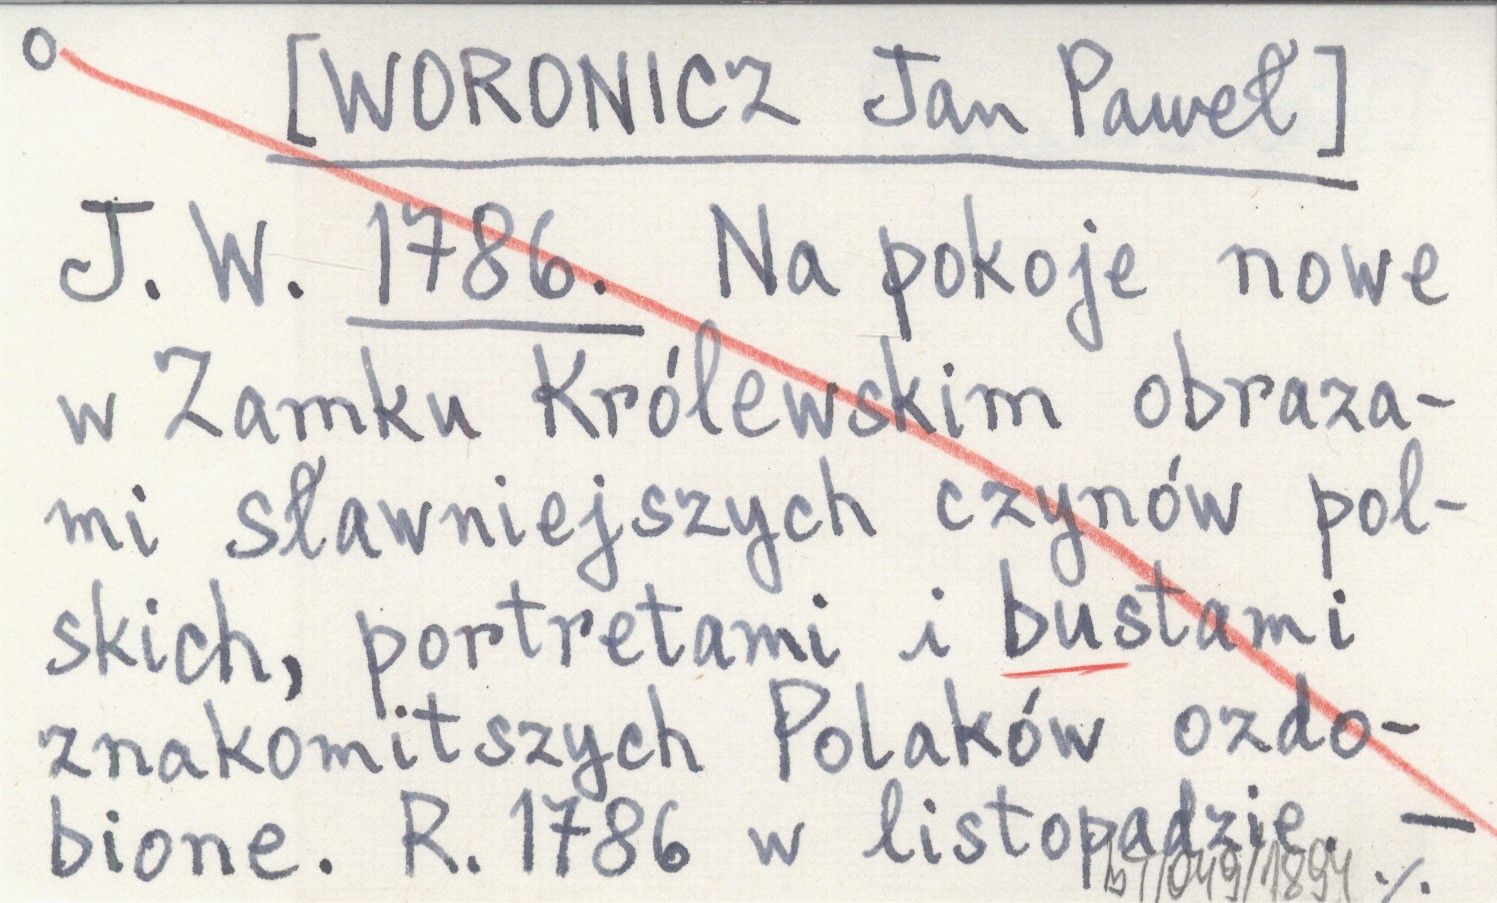 o [WORONICZ Jan Paweł]
J. W. 1786. Na pokoje nowe
w Zamku Królewskim obraza-
mi sławniejszych czynów pol-
skich, portretami i bustami
znakomitszych Polaków ozdo-
bione. R. 1786 w listopadzie. —
/049/1894 ./.